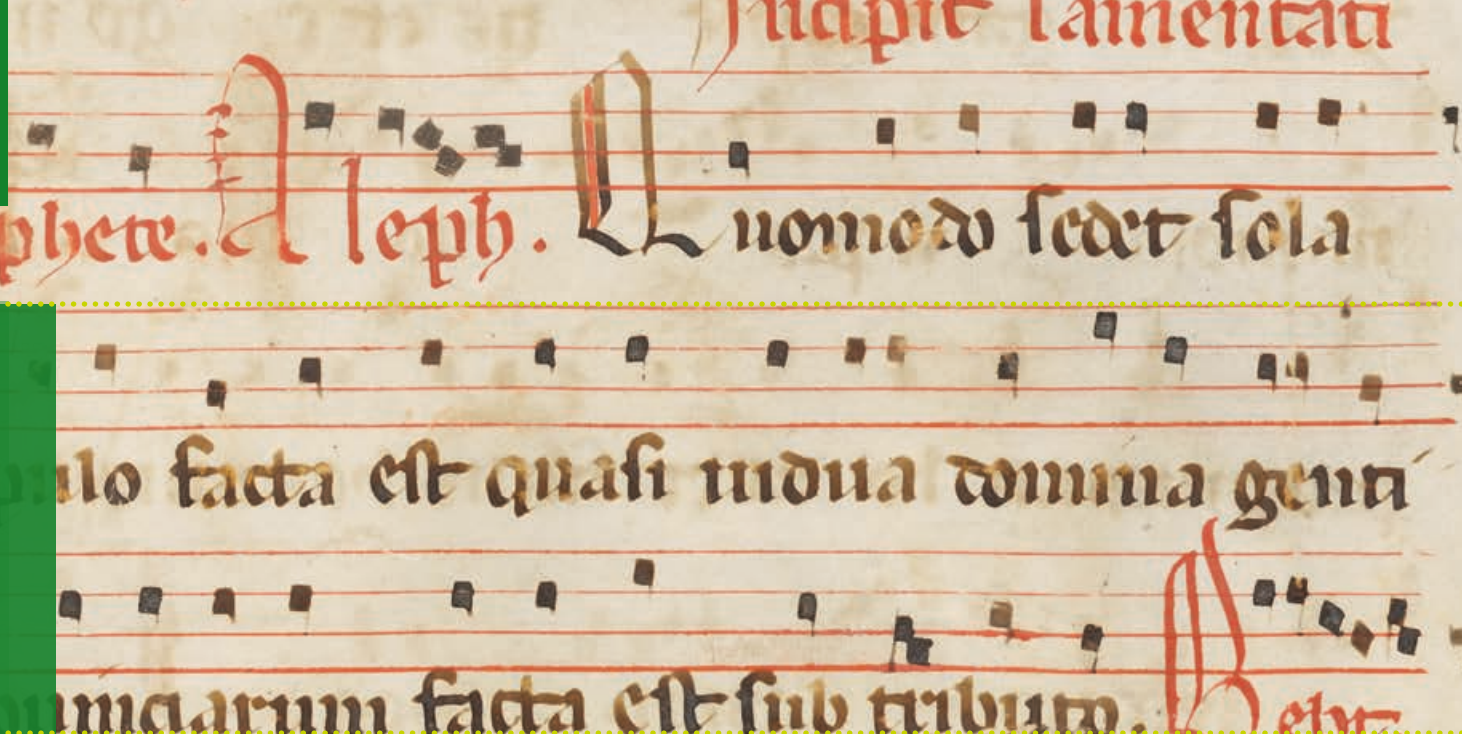 Incipit lamentati
phete. Aleph. Quomodo sedet sola
pulo facta est quasi uidua domina genti
uinciarum facta est sub tributo. Beht